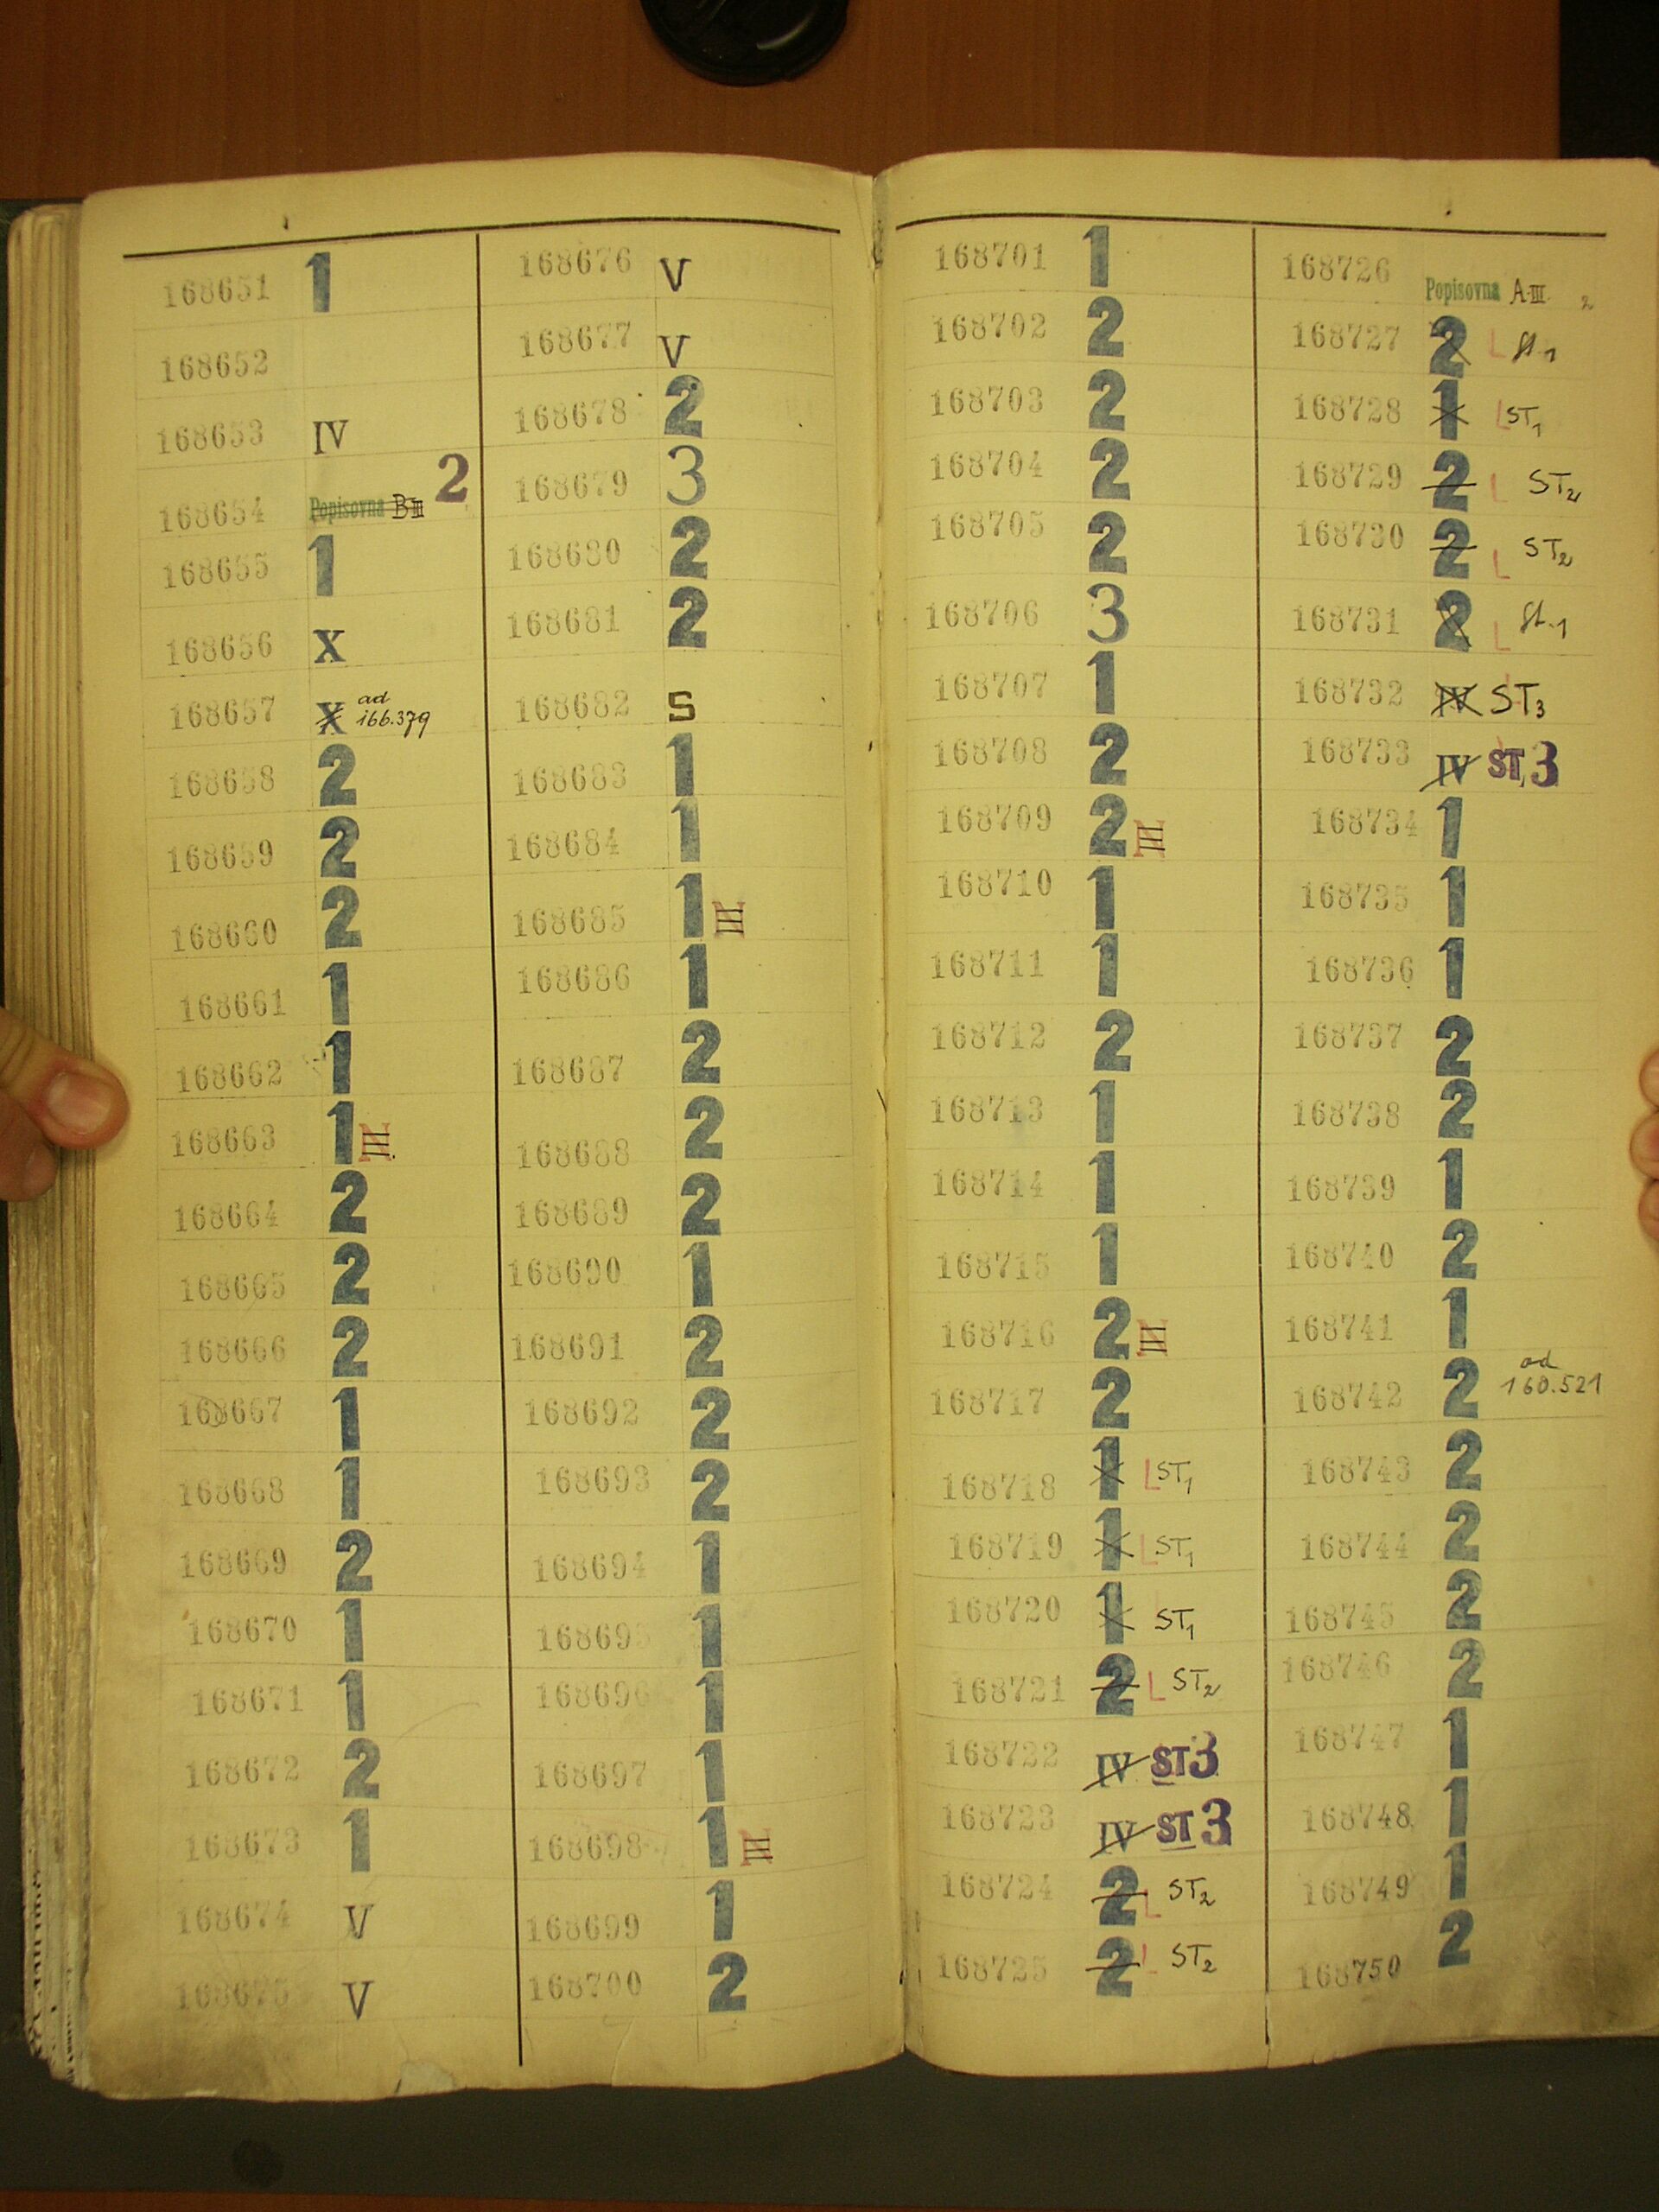 168651 1
168652
168653 IV
168654 Popisovna BIII 2
168655 1
168656 X
168657 X ad 166.379
168658 2
168659 2
168660 2
168661 1
168662 1
168663 1 N III
168664 2
168665 2
168666 2
168667 1
168668 1
168669 2
168670 1
168671 1
168672 2
168673 1
168674 V
168675 V
168676 V
168677 V
168678 2
168679 3
168680 2
168681 2
168682 S
168683 1
168684 1
168685 1 N III
168686 1
168687 2
168688 2
168689 2
168690 1
168691 2
168692 2
168693 2
168694 1
168695 1
168696 1
168697 1
168698 1 N III
168699 1
168700 2
168701 1
168702 2
168703 2
168704 2
168705 2
168706 3
168707 1
168708 2
168709 2 N III
168710 1
168711 1
168712 2
168713 1
168714 1
168715 1
168716 2 N III
168717 2
168718 1 L ST1
168719 1 L ST1
168720 1 ST1
168721 2 L ST2
168722 IV ST3
168723 IV ST3
168724 2 L ST2
168725 2 L ST2
168726 Popisovna A-III 2
168727 2 L St.1
168728 1 L ST1
168729 2 L ST2
168730 2 L ST2
168731 2 L St.1
168732 IV ST3
168733 IV ST,3
168734 1
168735 1
168736 1
168737 2
168738 2
168739 1
168740 2
168741 1
168742 2 ad 160.521
168743 2
168744 2
168745 2
168746 2
168747 1
168748 1
168749 1
168750 2